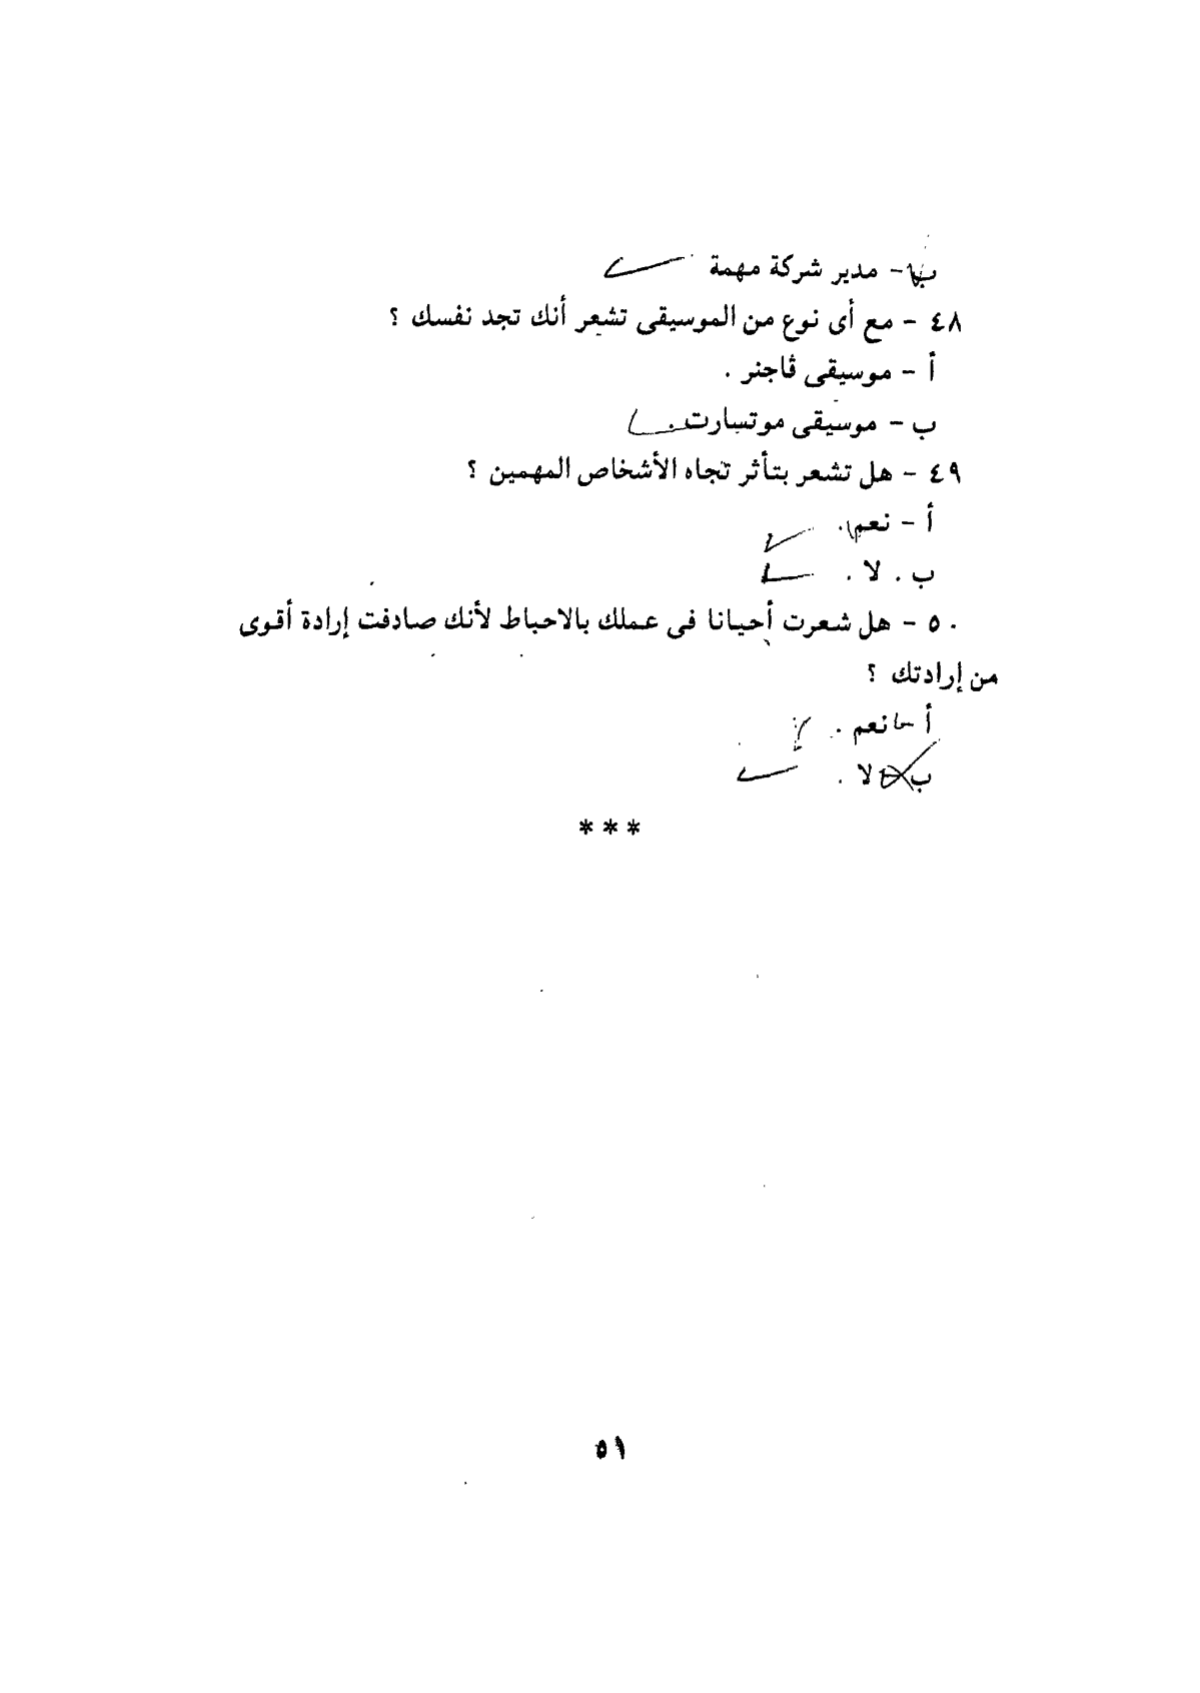 ب - مدير شركة مهمة
٤٨ - مع أى نوع من الموسيقى تشعر أنك تجد نفسك ؟
أ - موسيقى ڤاجنر .
ب - موسيقى موتسارت .
٤٩ - هل تشعر بتأثر تجاه الأشخاص المهمين ؟
أ - نعم .
ب . لا .
٥٠ - هل شعرت أحيانا فى عملك بالاحباط لأنك صادفت إرادة أقوى
من إرادتك ؟
أ - نعم .
ب - لا .
* * *
٥١